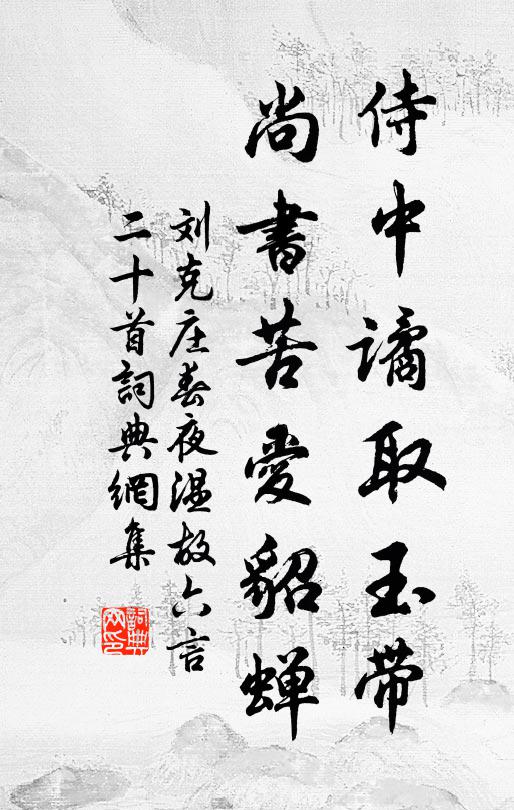 侍中谲取玉带
尚書苦愛貂蝉
刘克庄春夜温故六言
二十首詞典網集
詞典網印